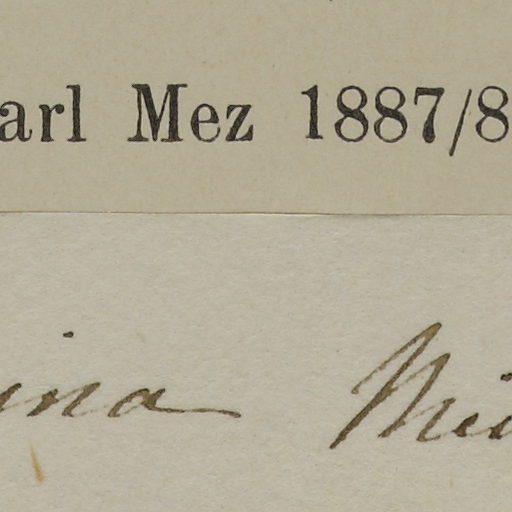 arl Mez 1887/8
ina Mei